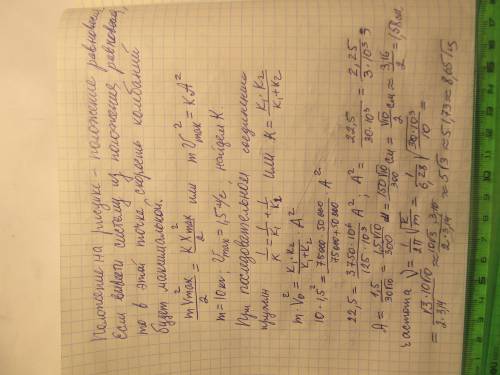 Положение на рисунке - положение равновесия,
Если вывести систему из положения равновесия,
то в этой точке скорость колебаний
будет максимальной.
mV²max/2 = kX²max/2 или mV²max = kA²
m = 10 кг, Vmax = 1,5 м/с, найдем K
При последовательном соединении
пружин 1/K = 1/K₁ + 1/K₂ или K = K₁·K₂/K₁+K₂
m·V₀² = K₁·K₂/K₁+K₂ A²
10·1,5² = 75000·50000/75000+50000 A²
22,5 = 3750·10⁶/125·10³ A², A² = 22,5/30·10³ = 2,25/3·10³
A = 1,5/30√10 = 1,5√10/300 м = 150√10/300 см = √10/2 см ≈ 3,16/2 = 1,58 см
частота ν = 1/2π √k/m = 1/6,28 √30·10³/10 =
= √3·10√10/2·3,14 ≈ 10√3·3,16/2·3,14 ≈ 5√3 ≈ 5·1,73 ≈ 8,65 Гц